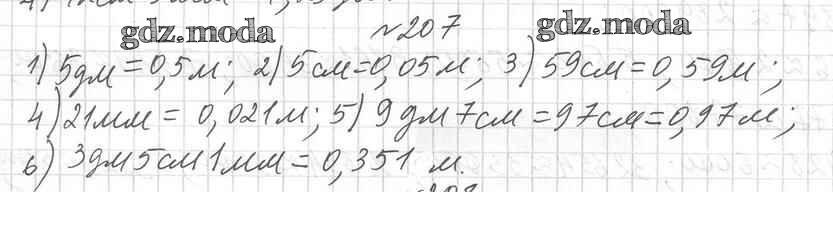 gdz.moda №207 gdz.moda
1) 5дм=0,5м; 2) 5см=0,05м; 3) 59см=0,59м;
4) 21мм = 0,021м; 5) 9дм7см=97см=0,97м;
6) 3дм5см1мм=0,351 м.